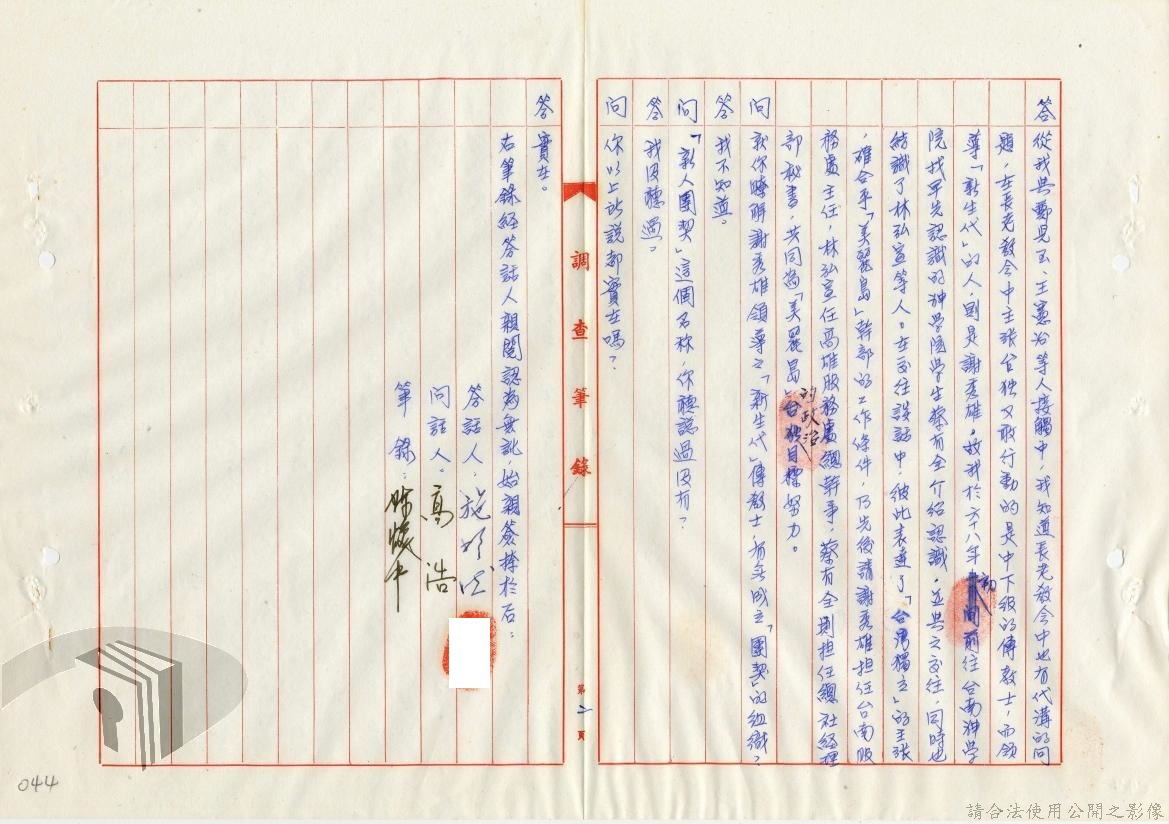 答　從我與鄭兒玉、王憲治等人接觸中，我知道長老教會中也有代溝的問
題，在長老教會中主張台獨又敢行動的是中下級的傳教士，而領
導「新生代」的人，則是謝秀雄。故我於六十八年初間前往台南神學
院找早先認識的神學院學生蔡有全介紹認識，並與之交往，同時也
結識了林弘宣等人。在交往談話中，彼此表達了「台灣獨立」的主張
，確合乎「美麗島」幹部的工作條件，乃先後請謝秀雄担任台南服
務處主任，林弘宣任高雄服務處總幹事，蔡有全則担任總社經理
部秘書，共同為「美麗島」的政治目標努力。
問　就你瞭解謝秀雄領導之「新生代」傳教士，有無成立「團契」的組織？
答　我不知道。
問　「新人團契」這個名称，你聽說過沒有？
答　我沒聽過。
問　你以上所說都實在嗎？
答　實在。
右筆錄經答話人親閱認為無訛，始親簽捺於后：
答話人：施明德
問話人：高浩
筆錄：
調查筆錄
第二頁
044
請合法使用公開之影像